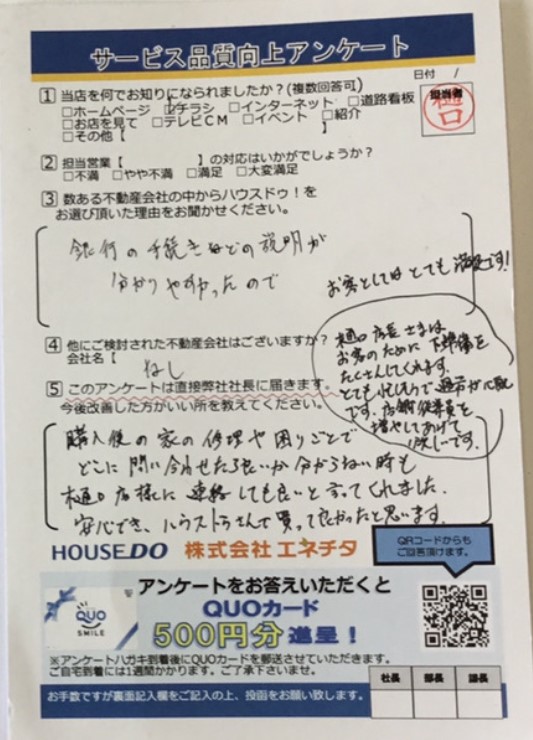 サービス品質向上アンケート
日付 /
1 当店を何でお知りになられましたか?(複数回答可)
□ホームページ □チラシ □インターネット □道路看板
□お店を見て □テレビCM □イベント □紹介
□その他【 】
担当者
樋口
2 担当営業【 】の対応はいかがでしょうか?
□不満 □やや不満 □満足 □大変満足
3 数ある不動産会社の中からハウスドゥ!を
お選び頂いた理由をお聞かせください。
銀行の手続きなどの説明が
分かりやすかったので
お客としてはとても満足です!
4 他にご検討された不動産会社はございますか?
会社名【
なし
樋口店長さまは
お客のために下準備を
たくさんしてくれます。
とても忙しそうで過労が心配
です。店舗従業員を
増やしてあげて
欲しいです。
5 このアンケートは直接弊社社長に届きます。
今後改善した方がいい所を教えてください。
購入後の家の修理や困りごとで
どこに問い合わせたら良いか分からない時も
樋口店様に連絡しても良いと言ってくれました。
安心でき、ハウスドゥさんで買って良かったと思います。
HOUSE DO 株式会社 エネチタ
QRコードからも
ご回答頂けます。
アンケートをお答えいただくと
QUOカード
500円分進呈!
QUO
SMILE
※アンケートハガキ到着後にQUOカードを郵送させていただきます。
ご自宅到着には1週間かかります。ご了承下さいませ。
社長 部長 課長
お手数ですが裏面記入欄をご記入の上、投函をお願い致します。